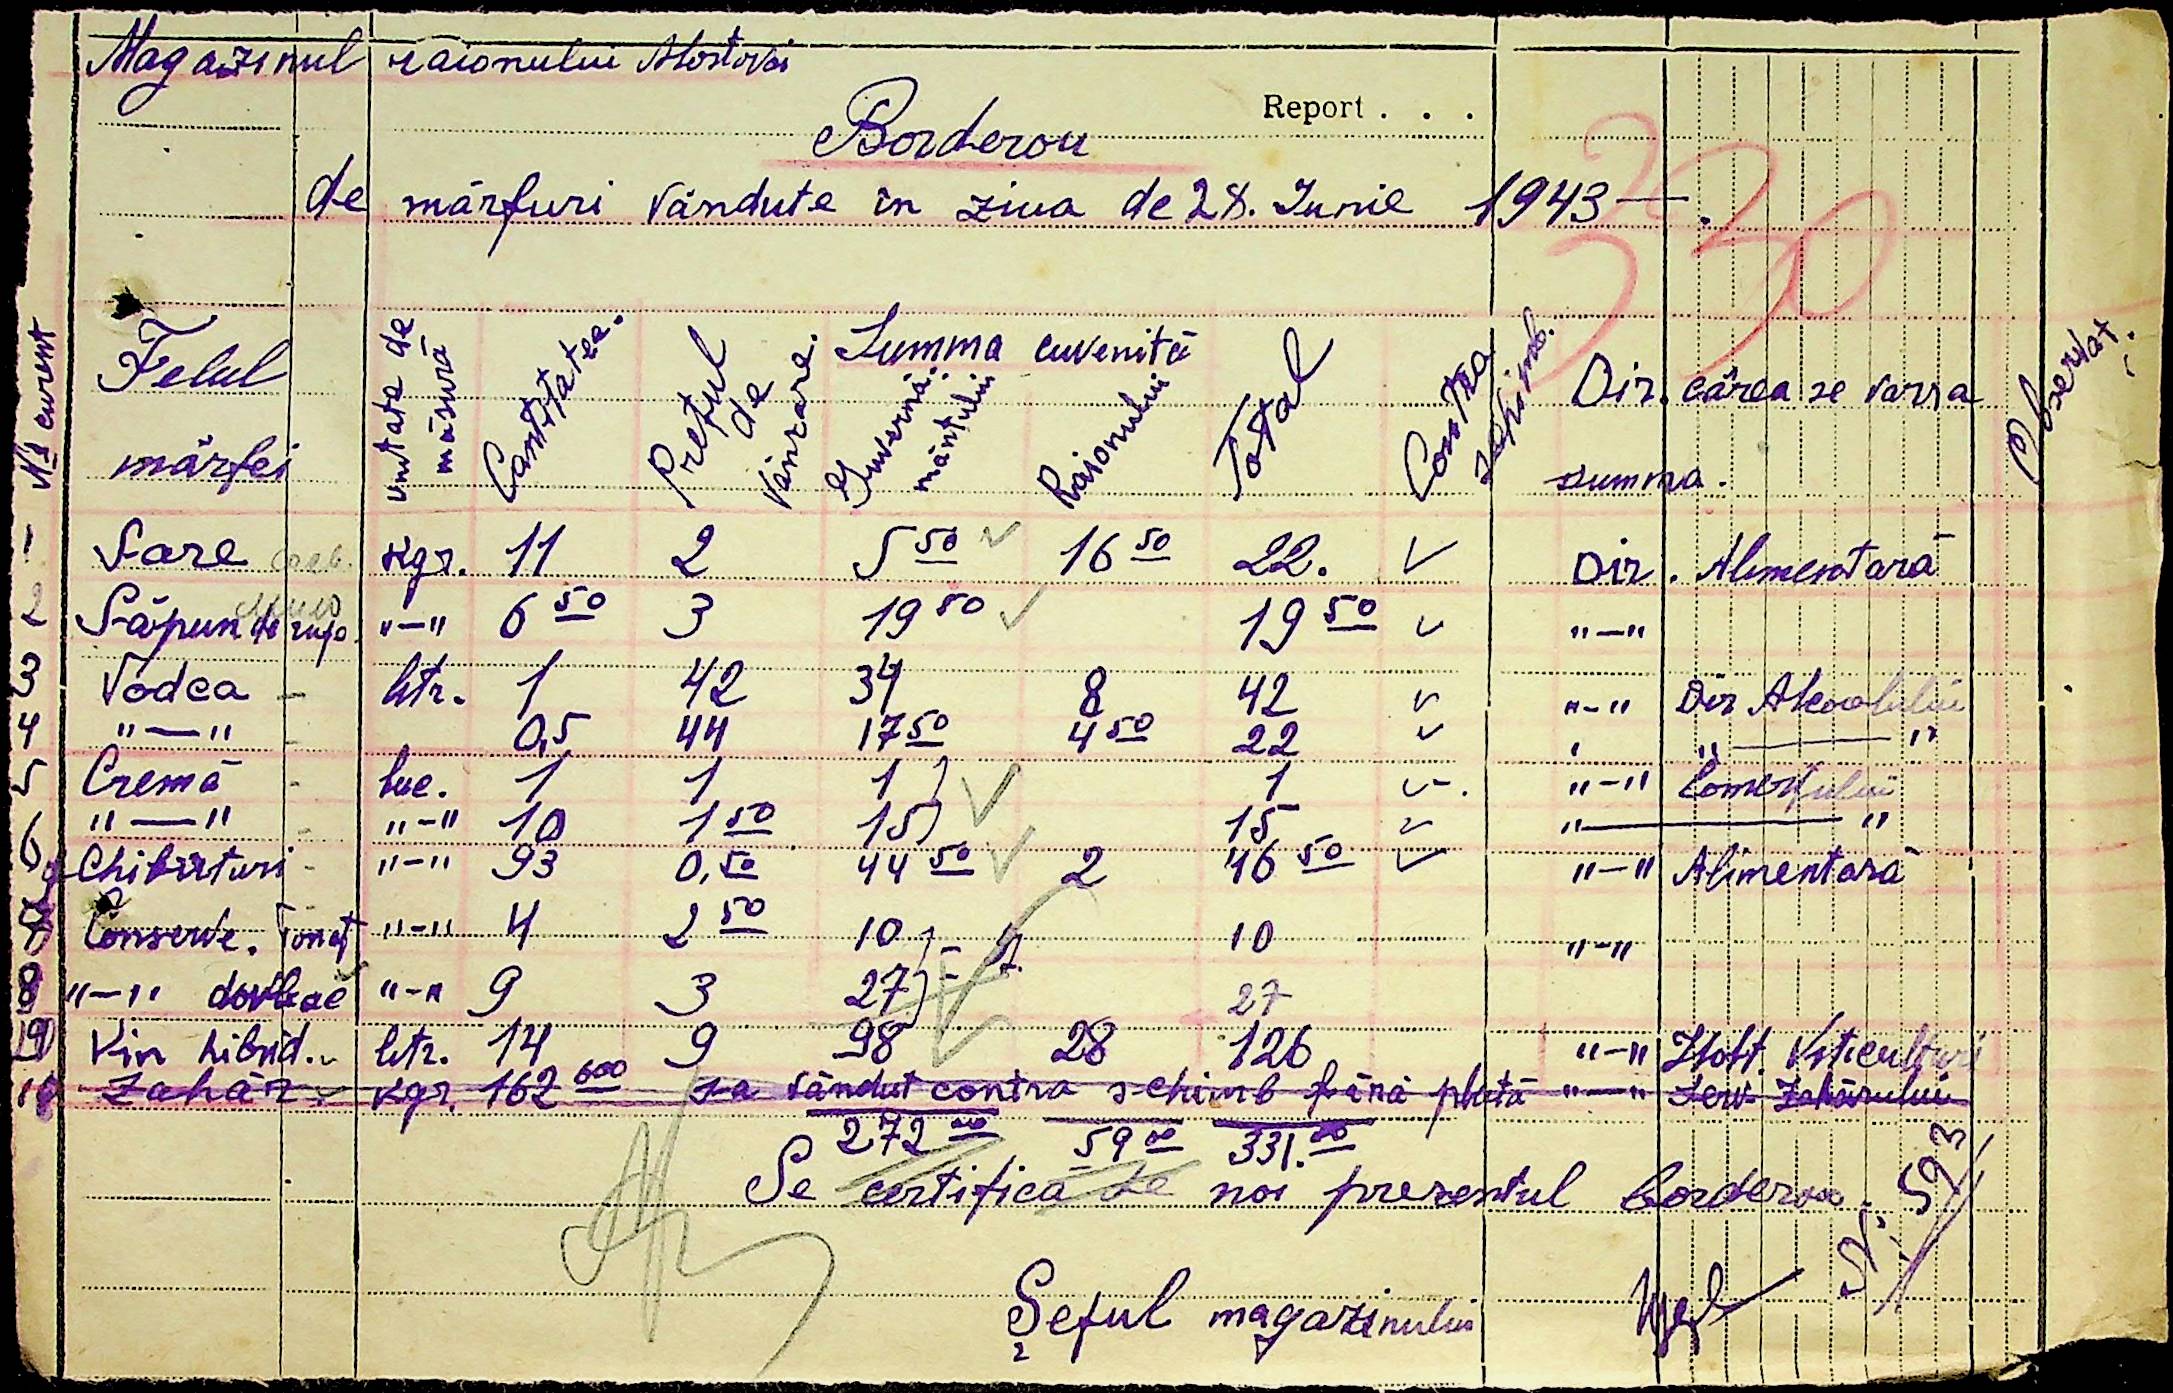 Magazinul raionului Mostovoi
Report . . .
Borderou
de mărfuri vândute în ziua de 28. Iunie 1943 —.
330
№ curent Felul mărfei unitate de măsură Cantitatea. Prețul de vânzare. Summa cuvenită Guvernă-mântului Raionului Total Contra schimb. Dir. cărea se varsă summa. Observaț.
1 Sare kgr. 11 2 5 50 ✓ 16 50 22. ✓ Dir. Alimentară
2 Săpun de rufe. "—" 6 50 3 19 50 ✓ 19 50 ✓ "—"
3 Vodca - ltr. 1 42 34 8 42 ✓ "-" Dir Alcoolului
4 "—" - 0,5 44 17 50 4 50 22 ✓ " —— "
5 Cremă - buc. 1 1 1 ✓ 1 ✓ "-" Comerțului
6 "—" - "-" 10 1 50 15 15 ✓ " —— "
Chibrituri - "-" 93 0,50 44 50 ✓ 2 46 50 ✓ "-" Alimentară
7 Conserve. Tomat "-" 4 2 50 10 10 "-"
8 "—" dovleac "-" 9 3 27 27
9 Vin hibrid. ltr. 14 9 98 28 126 "-" Instit. Viticulturi
10 Zahăr kgr. 162 600 sa vândut contra schimb fără plată "—" Serv. Zahărului
272 00 59 00 331. 00
Se certifică de noi prezentul borderou.
Șeful magazinului